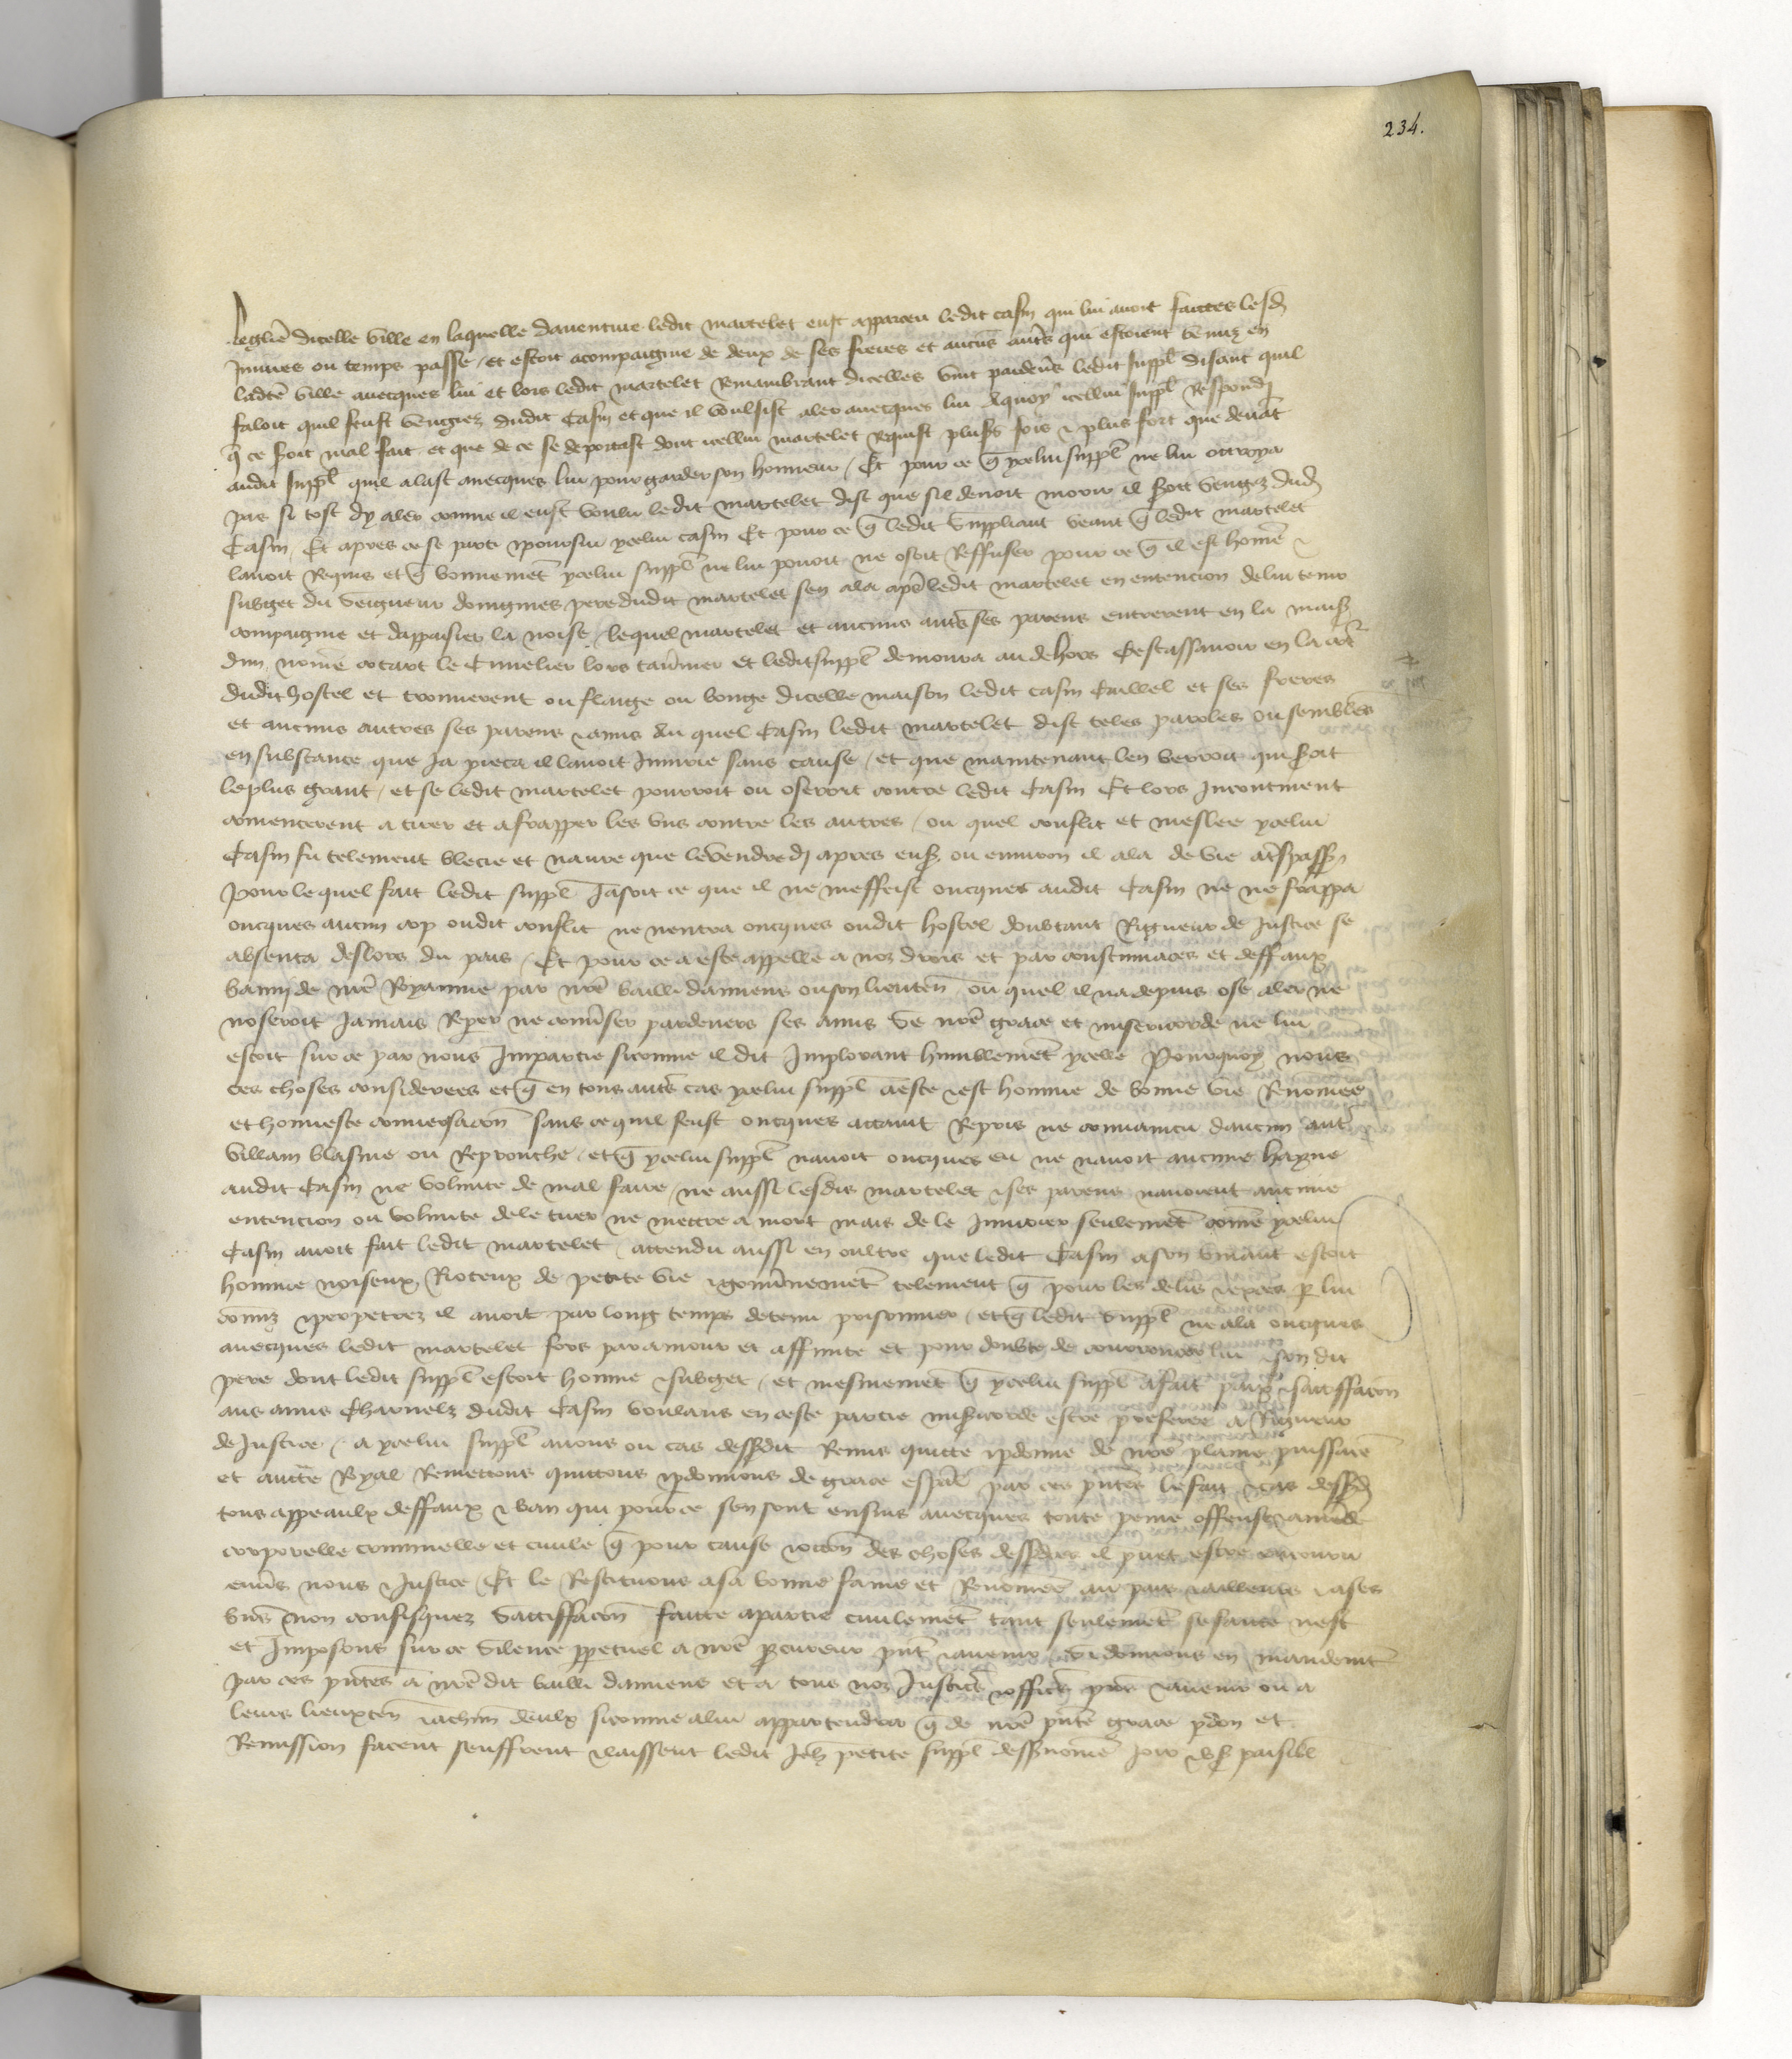 234.
leglise dicelle ville en laquelle daventure ledit martelet eust apparceu ledit casin qui lui avoit faictes lesd
Iniures ou temps passe / et estoit acompaignie de deux de ses freres et aucuns autrs qui estoient venuz en
ladte ville avecques lui et lors ledit martelet Remambrant dicelles vint pardevs ledit suppl disant quil
faloit quil feust vengiez dudit Casin et que il voulsist aler avecques lui A quoy icellui suppl Respondi
q ce soit mal fait et que de ce se deportast dont icellui martelet Requist plusrs fois & plus fort que devat
audit suppl quil alast avecques lui pour garder son honneur / Et pour ce q ycelui suppl ne lui ottroya
pas si tost dy aler comme il eust voulu ledit martelet dist que sil devoit morir il soit vengez dud
Casin / Et apres ce se parti & poursui ycelui casin Et pour ce q ledit Suppliant veant q ledit martelet
lavoit Requis et q bonnemet ycelui suppl ne lui povoit ne osoit Reffuser pour ce q il est home &
subget du Seigneur domgmes pere dudit martelet sen ala aps ledit martelet en entencion de lui tenir
compaignie et dappaisier la noise / lequel martelet et aucuns autrs ses parens entrerent en la mais
dun nome cotart le Cuvelier lors tavernier et ledit suppl demoura au dehors Cestassavoir en la co't
dudit hostel et trouverent ou flaige ou bouge dicelle maison ledit casin Cuivel et ses freres
et aucuns autres ses parens & amis Au quel Casin ledit martelet dist teles paroles ou sembles
en substance que Ja pieca il lavoit Iniurie sans cause / et que maintenant len verroit qui soit
le plus grant / et se ledit martelet pourroit ou oseroit contre ledit Casin Et lors Incontinent
comencerent a tirer et a frapper les uns contre les autres / ou quel conflit et meslee ycelui
Casin fu telement blecie et navre que levendredi apres ens ou environ il ala de vie a trspass
Pour le quel fait ledit suppl Jasoit ce que il ne meffeist oncques audit Casin ne ne frappa
oncques aucun cop oudit conflit ne nentra oncques oudit hostel doubtant Rigueur de Justice se
absenta deslors du pais / Et pour ce a este appelle a noz drois et par contumaces et deffaux
banny de nre Royaume par nre bailli damiens ou son lieuten ou quel il na depuis ose aler ne
noseroit Jamais Reper ne converser pardevers ses amis Se nre grace et misericorde ne lui
estoit sur ce par nous Impartie sicomme il dit Implorant humblemet ycelle Pourquoy nous
ces choses considerees et q en tous autrs cas ycelui suppl a este & est homme de bonne vie Renomee
et honneste conversacon sans ce quil feust oncques attaint Repris ne convaincu daucun autr
villain blasme ou Reprouche / et q ycelui suppl navoit oncques eu ne navoit aucune hayne
audit Casin ne volunte de mal faire / ne aussi lesdis martelet & ses parens navoient aucune
entencion ou volunte de le tuer ne mettre a mort mais de le Iniurier seulemet come ycelui
Casin avoit fait ledit martelet / attendu aussi en oultre que ledit Casin a son vivant estoit
homme noiseux Rioteux de petite vie & gouvnemet telement q pour les delis & exces p lui
comis & perpetrez il avoit par long temps detenu prisonnier / et q ledit Suppl ne ala oncques
avecques ledit martelet fors par amour et affinite et pour doubte de courroucer lui & son dit
pere dont ledit suppl estoit homme & subget / et mesmemet q ycelui suppl a fait paix & satisfacon
aus amis Charnelz dudit Casin voulans en ceste partie misicorde estre preferee a Rigueur
de Justice / a ycelui suppl avons ou cas dessdit Remis quitte & pdonne de nre plaine puissance
et aucte Royal Remettons quittons & pdonnons de grace espal par ces pntes le fait & cas dessd
tous appeaulx deffaux & ban qui pour ce sen sont ensuis avecques toute peine offense & amde
corporelle criminelle et civile q pour cause & occon des choses dessdtes il puet estre encouru
envs nous & Justice / Et le Restituons a sa bonne fame et Renomee au pais & ailleurs & a ses
biens non confisquez Sattisfacon faitte a partie civilemet tant seulemet se faitte nest
et Imposons sur ce silence ppetuel a nre pcureur pnt & avenir Si donnons en mandemt
par ces pntes a nre dit bailli damiens et a tous noz Justicrs & officrs pns & avenir ou a
leurs lieuxten & a chun deulx sicomme a lui appartendra q de nre pnte grace pdon et
Remission facent seuffrent & laissent ledit Jeh petite suppl dessnome Joir & us paisibl